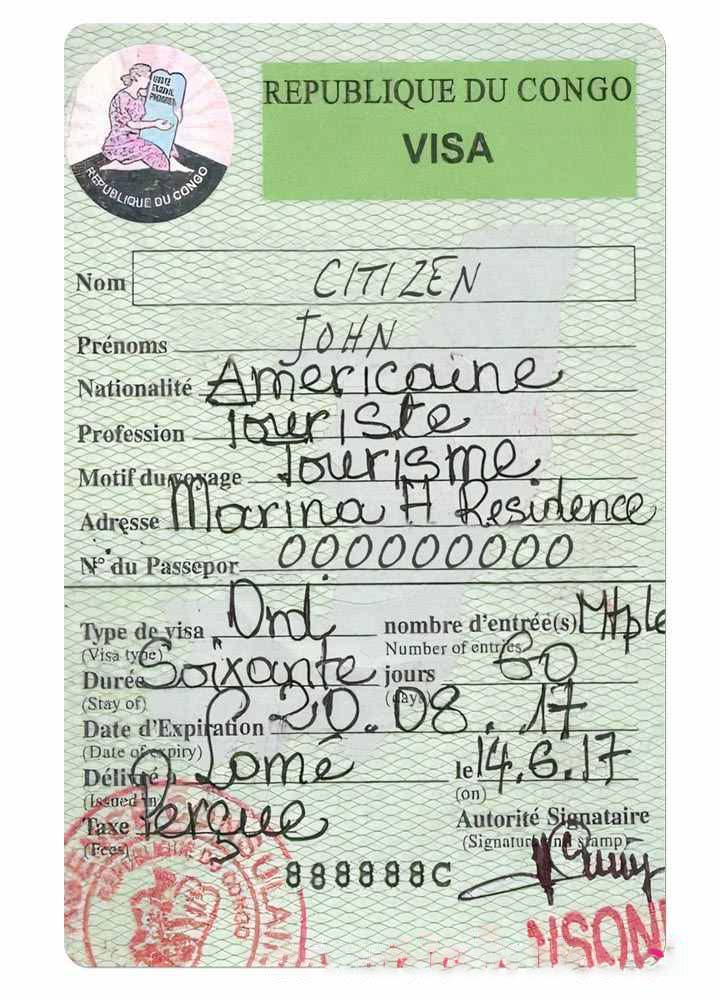 UNITE TRAVAIL PROGRES
REPUBLIQUE DU CONGO
REPUBLIQUE DU CONGO
VISA
Nom CITIZEN
Prénoms JOHN
Nationalité Americaine
Profession Touriste
Motif du voyage Tourisme
Adresse Marina H Residence
N° du Passepor 000000000
Type de visa Ord. nombre d'entrée(s) Mtple
(Visa type) Number of entries
Durée Soixante jours 60
(Stay of) (days)
Date d'Expiration 20.08.17
(Date of expiry)
Délivré à Lomé le 14.6.17
(Issued in) (on)
Taxe Perçue Autorité Signataire
(Fees) (Signature and stamp)
888888C
REPUBLIQUE DU CONGO